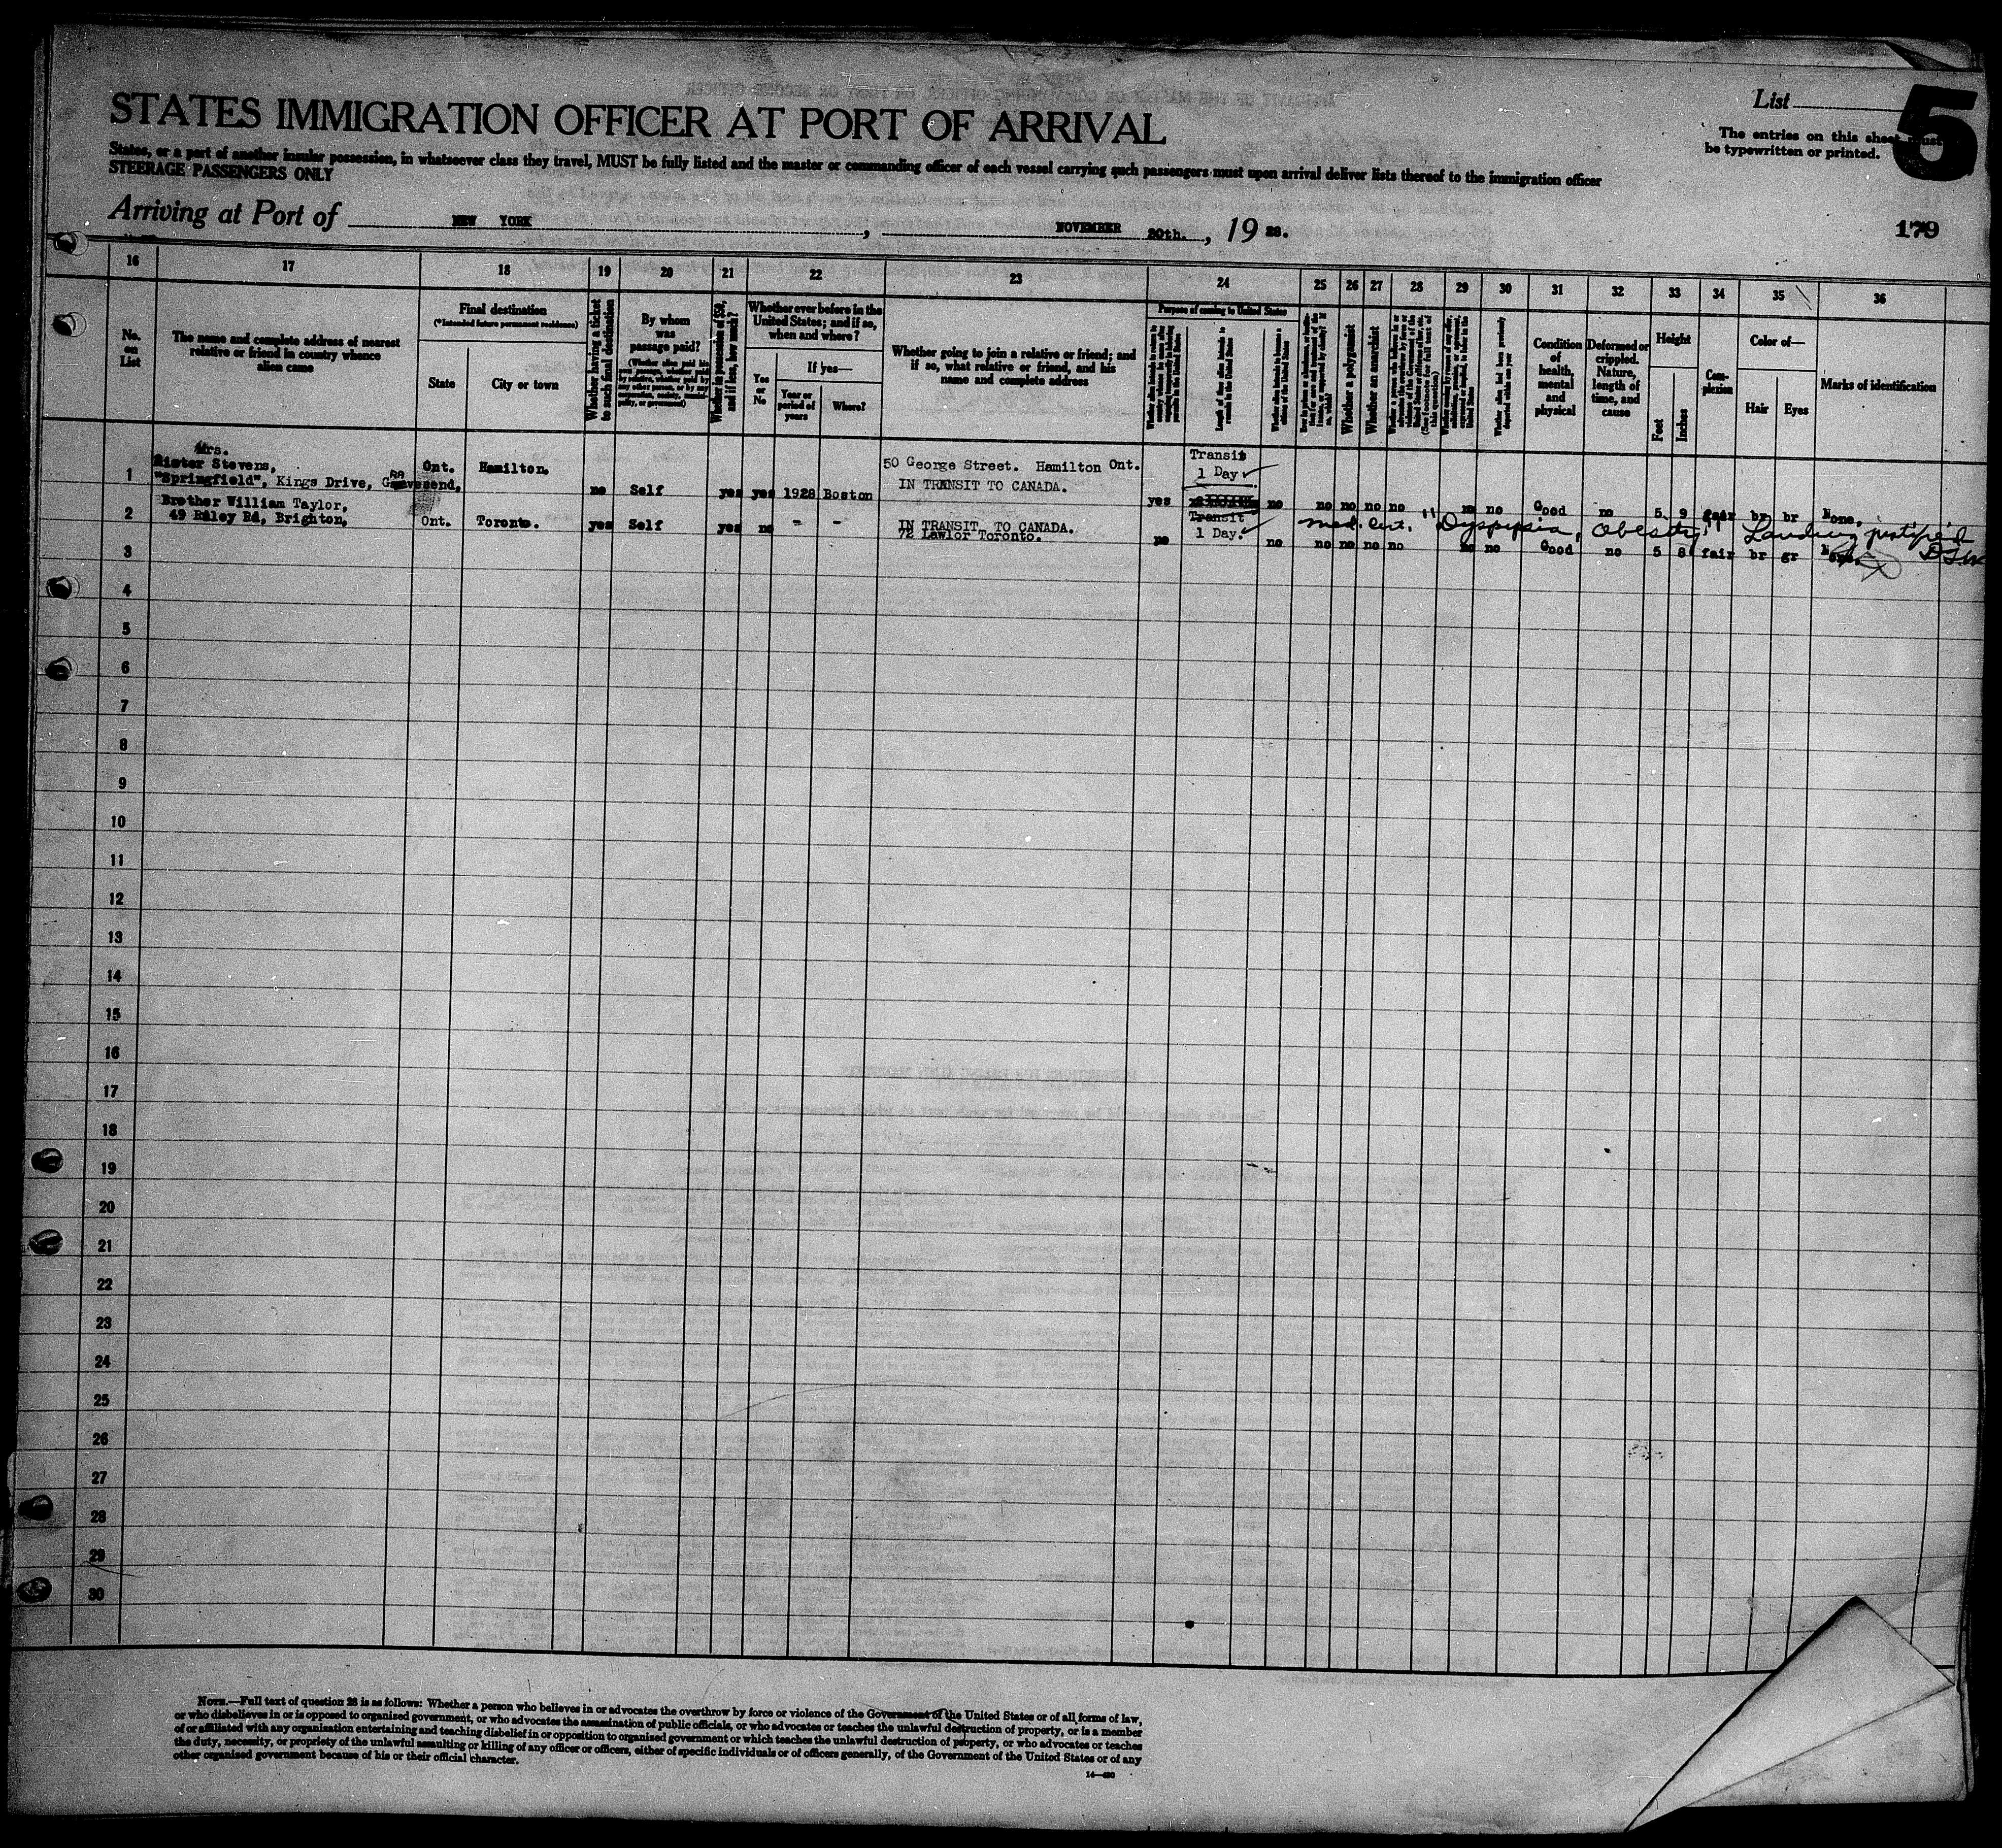 List 5
STATES IMMIGRATION OFFICER AT PORT OF ARRIVAL
The entries on this sheet must
be typewritten or printed.
States, or a part of another insular possession, in whatsoever class they travel, MUST be fully listed and the master or commanding officer of each vessel carrying such passengers must upon arrival deliver lists thereof to the immigration officer
STEERAGE PASSENGERS ONLY
Arriving at Port of NEW YORK, NOVEMBER 20th., 19 28.
179
16 17 18 19 20 21 22 23 24 25 26 27 28 29 30 31 32 33 34 35 36
No. on List
The name and complete address of nearest relative or friend in country whence alien came
Final destination
(*Intended future permanent residence)
State
City or town
Whether having a ticket to such final destination
By whom was passage paid?
Whether in possession of $50, and if less, how much?
Whether ever before in the United States; and if so, when and where?
Yes or No
If yes—
Year or period of years
Where?
Whether going to join a relative or friend; and if so, what relative or friend, and his name and complete address
Purpose of coming to United States
Length of time alien intends to remain in the United States
Whether a polygamist
Whether an anarchist
(See footnote for full text of this question)
Condition of health, mental and physical
Deformed or crippled. Nature, length of time, and cause
Height
Feet
Inches
Complexion
Color of—
Hair
Eyes
Marks of identification
Mrs.
1 Sister Stevens, Ont. Hamilton. 50 George Street. Hamilton Ont. Transit
"Springfield", Kings Drive, Gravesend, IN TRANSIT TO CANADA. 1 Day
no Self yes yes 1928 Boston yes no no no no no no no Good no 5 9 fair br br None,
2 Brother William Taylor,
49 Raley Rd, Brighton, Ont. Toronto. yes Self yes no - - IN TRANSIT TO CANADA. Transit
72 Lawlor Toronto. 1 Day.
med. cert. "Dyspepsia, Obesity" Landing justified
no no no no no no no no Good no 5 8 fair br gr
3
4
5
6
7
8
9
10
11
12
13
14
15
16
17
18
19
20
21
22
23
24
25
26
27
28
29
30
NOTE.—Full text of question 28 is as follows: Whether a person who believes in or advocates the overthrow by force or violence of the Government of the United States or of all forms of law,
or who disbelieves in or is opposed to organized government, or who advocates the assassination of public officials, or who advocates or teaches the unlawful destruction of property, or is a member
of or affiliated with any organization entertaining and teaching disbelief in or opposition to organized government or which teaches the unlawful destruction of property, or who advocates or teaches
the duty, necessity, or propriety of the unlawful assaulting or killing of any officer or officers, either of specific individuals or of officers generally, of the Government of the United States or of any
other organized government because of his or their official character.